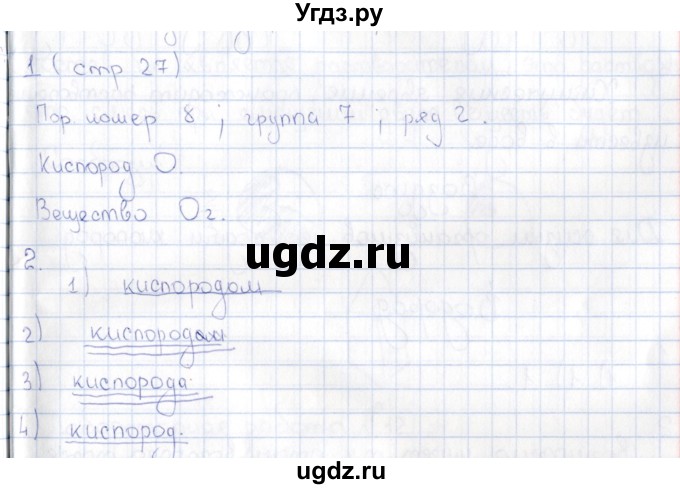 Угдз.ру
1 (стр 27)
Пор. номер 8 ; группа 7 ; ряд 2.
Кислород O.
Вещество O2.
ugdz.ru
2.
1) кислородом
2) кислородом
3) кислорода
4) кислород.
ugdz.ru